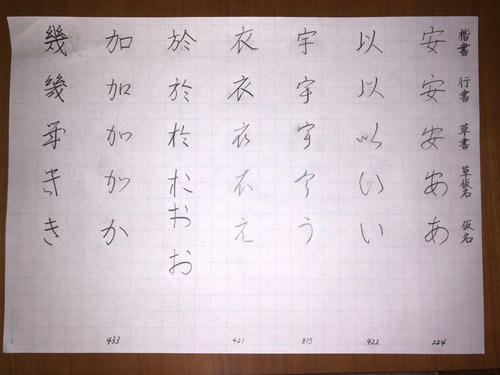 楷書 行書 草書 草仮名 仮名
安 安 安 あ あ 224
以 以 以 い い 422
宇 宇 宇 う う 815
衣 衣 衣 衣 え 421
於 於 於 お お お
加 加 加 か か 433
幾 幾 幾 き き